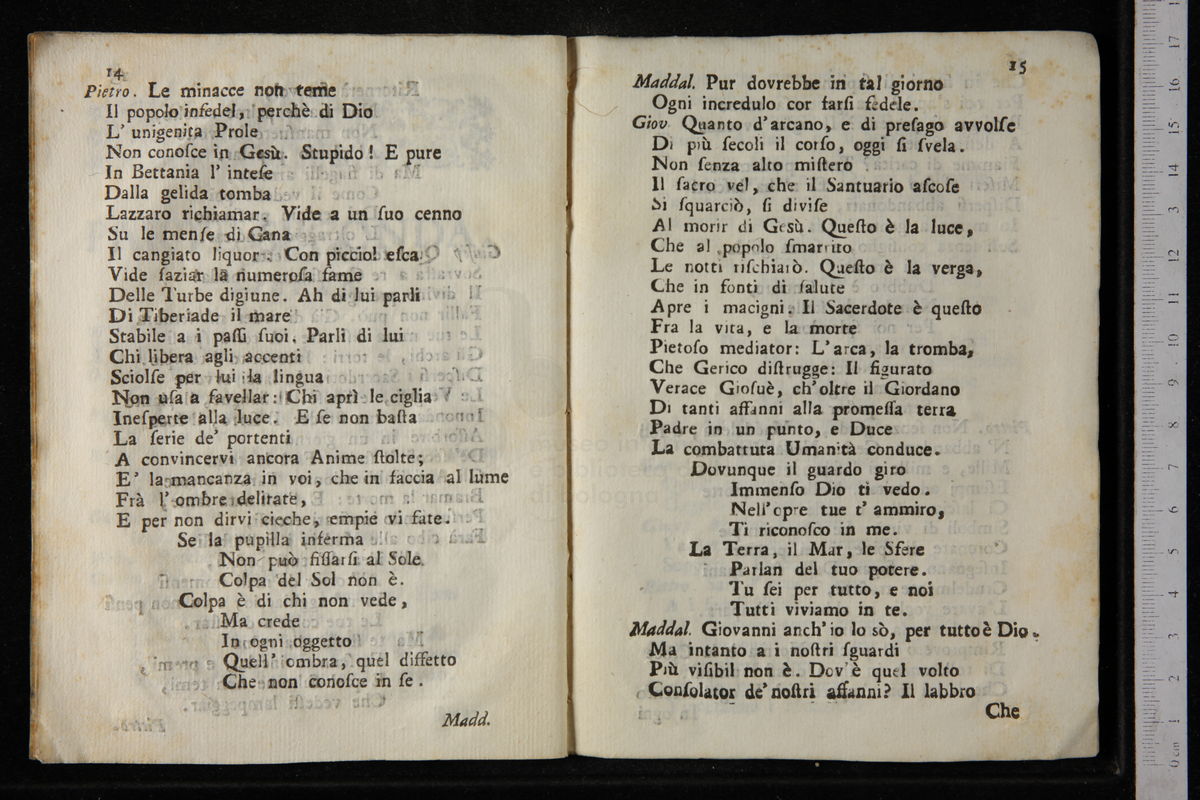 14
Pietro. Le minacce non teme
Il popolo infedel, perchè di Dio
L' unigenita Prole
Non conoſce in Gesù. Stupido! E pure
In Bettania l' inteſe
Dalla gelida tomba
Lazzaro richiamar. Vide a un ſuo cenno
Su le menſe di Cana
Il cangiato liquor. Con picciol eſca
Vide ſaziar la numeroſa fame
Delle Turbe digiune. Ah di lui parli
Di Tiberiade il mare
Stabile a i paſſi ſuoi. Parli di lui
Chi libera agli accenti
Sciolſe per lui la lingua
Non uſa a favellar: Chi aprì le ciglia
Ineſperte alla luce. E ſe non baſta
La ſerie de' portenti
A convincervi ancora Anime ſtolte;
E' la mancanza in voi, che in faccia al lume
Frà l' ombre delirate,
E per non dirvi cieche, empie vi fate.
Se la pupilla inferma
Non può fiſſarſi al Sole
Colpa del Sol non è.
Colpa è di chi non vede,
Ma crede
In ogni oggetto
Quell' ombra, quel diffetto
Che non conoſce in ſe.
Madd.
15
Maddal. Pur dovrebbe in tal giorno
Ogni incredulo cor farſi fedele.
Giov Quanto d'arcano, e di preſago avvolſe
Di più ſecoli il corſo, oggi ſi ſvela.
Non ſenza alto miſtero
Il ſacro vel, che il Santuario aſcoſe
Si ſquarciò, ſi diviſe
Al morir di Gesù. Queſto è la luce,
Che al popolo ſmarrito
Le notti riſchiarò. Queſto è la verga,
Che in fonti di ſalute
Apre i macigni. Il Sacerdote è queſto
Fra la vita, e la morte
Pietoſo mediator: L'arca, la tromba,
Che Gerico diſtrugge: Il figurato
Verace Gioſuè, ch'oltre il Giordano
Di tanti affanni alla promeſſa terra
Padre in un punto, e Duce
La combattuta Umanità conduce.
Dovunque il guardo giro
Immenſo Dio ti vedo.
Nell'opre tue t' ammiro,
Ti riconoſco in me.
La Terra, il Mar, le Sfere
Parlan del tuo potere.
Tu ſei per tutto, e noi
Tutti viviamo in te.
Maddal. Giovanni anch'io lo sò, per tutto è Dio.
Ma intanto a i noſtri ſguardi
Più viſibil non è. Dov'è quel volto
Conſolator de' noſtri affanni? Il labbro
Che